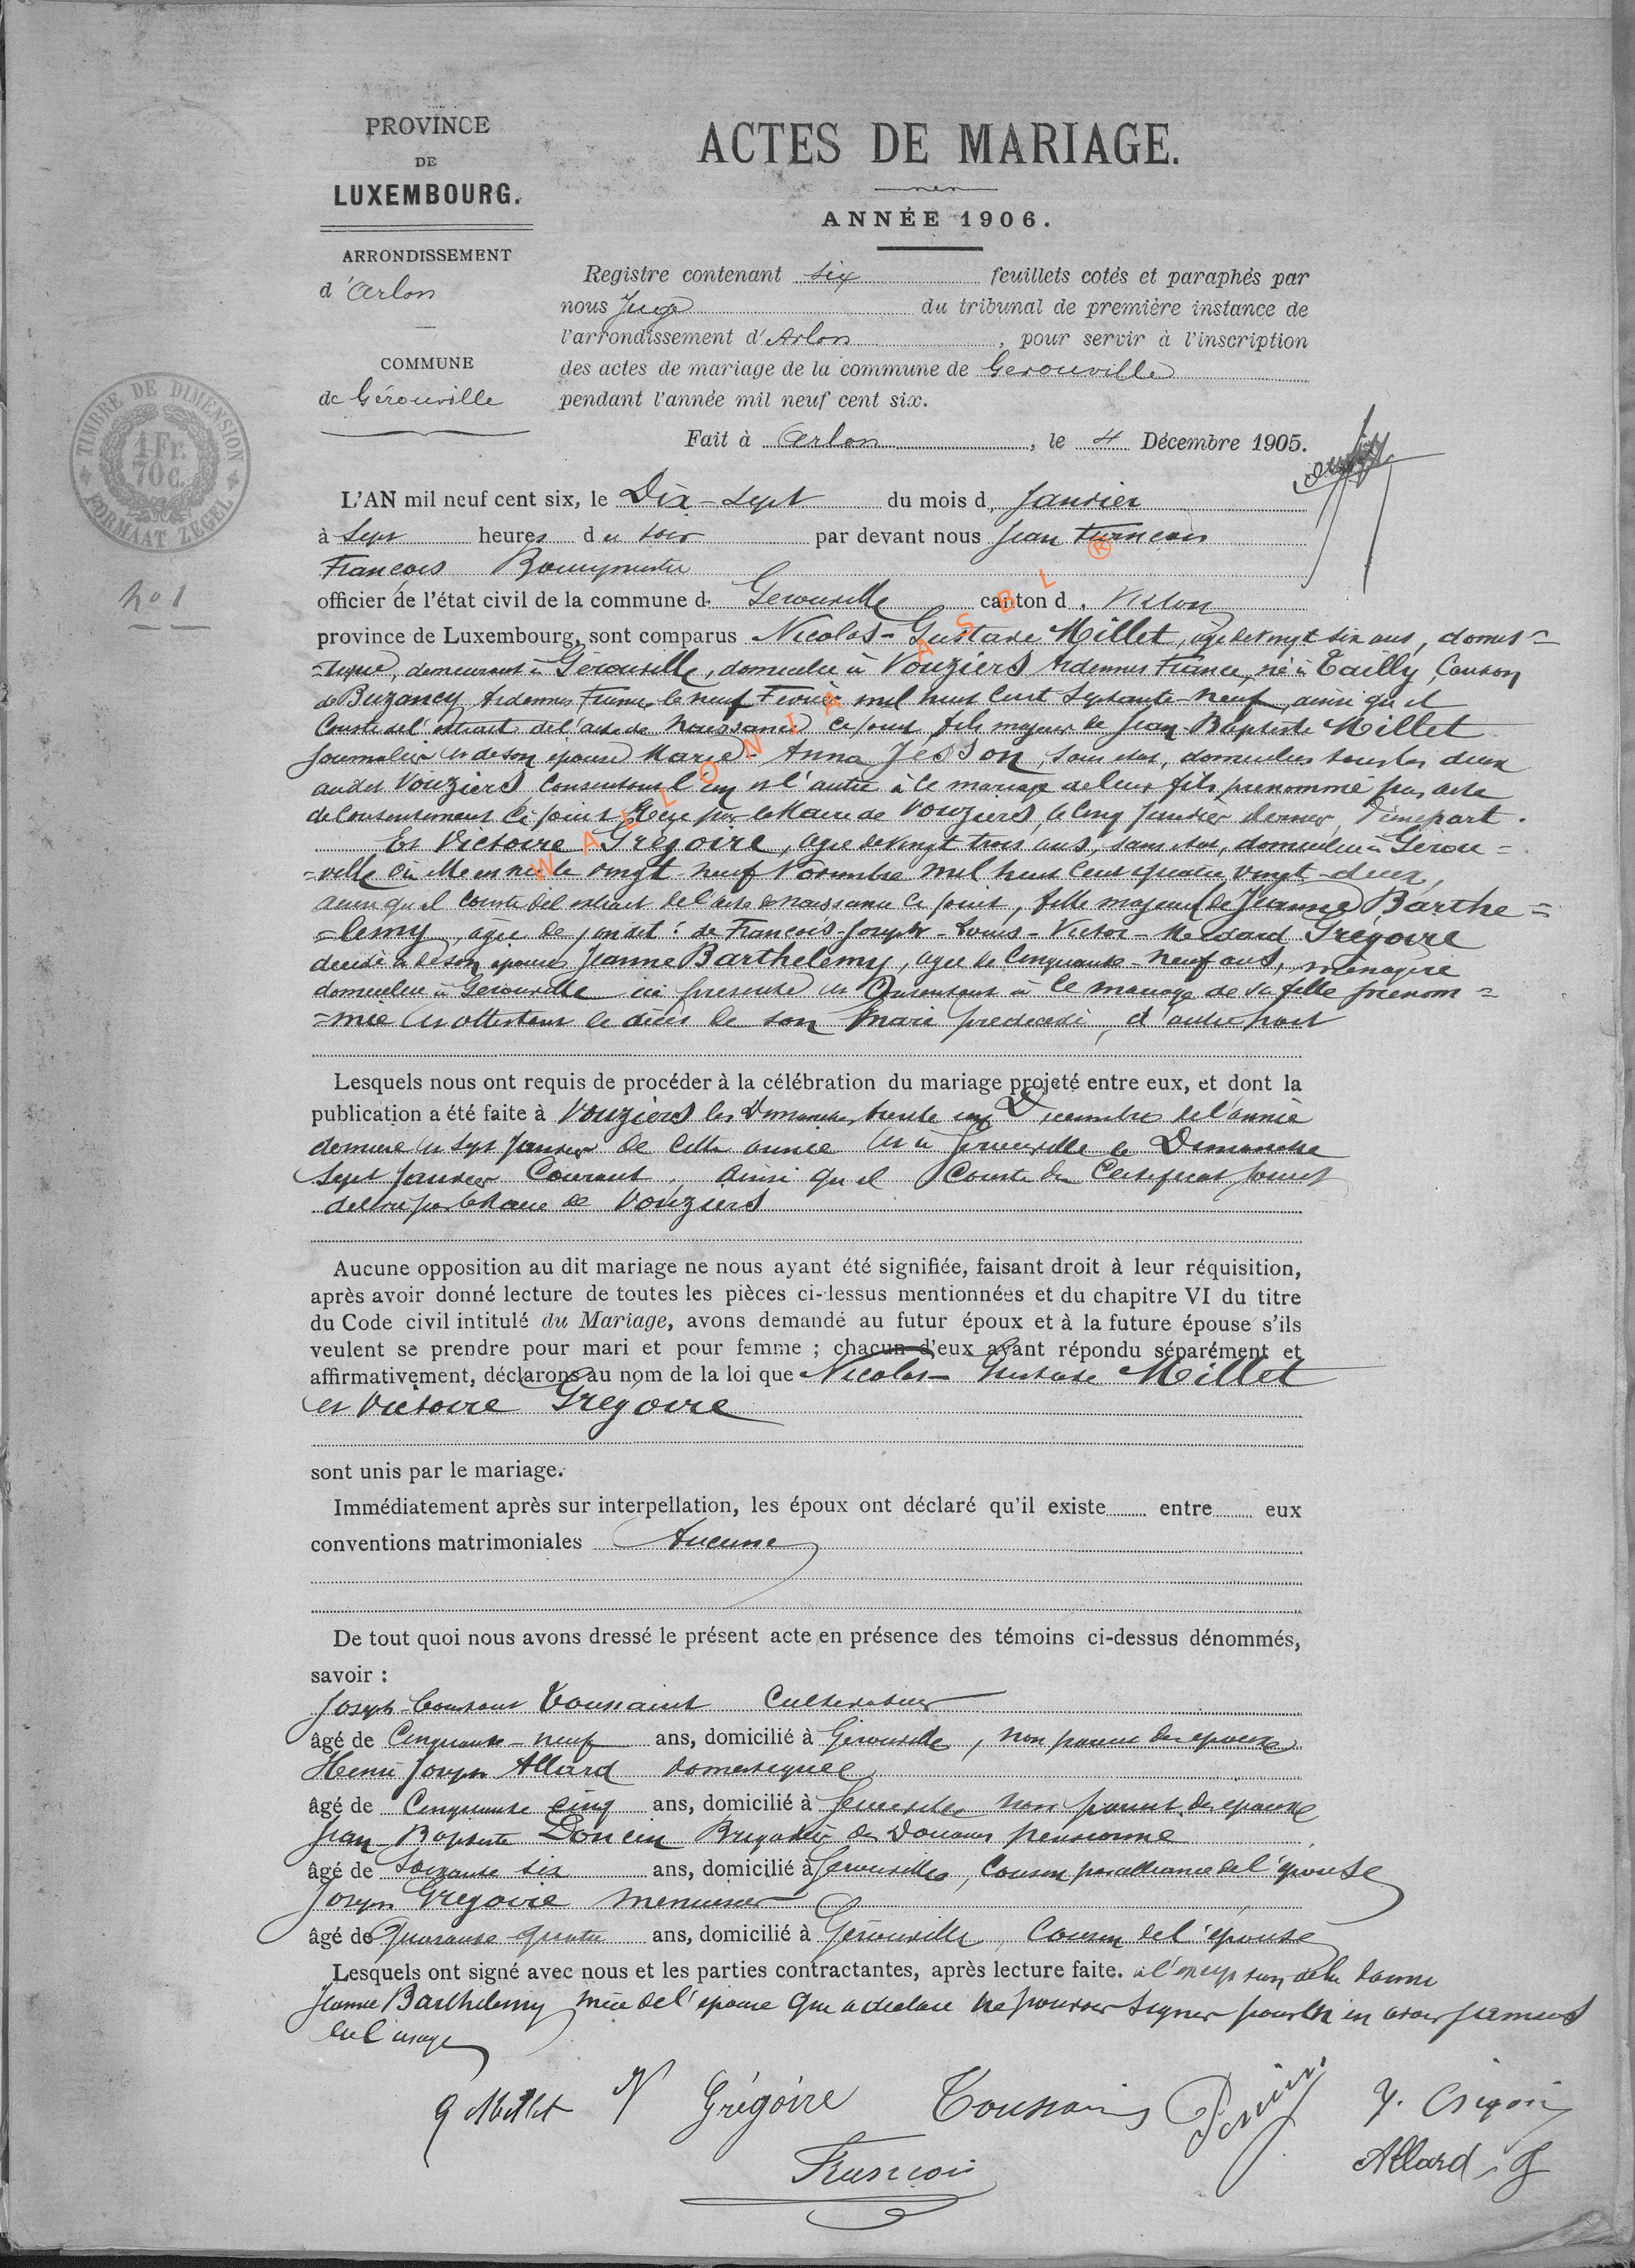 PROVINCE
DE
LUXEMBOURG.
ARRONDISSEMENT
d'Arlon
COMMUNE
de Gérouville
ACTES DE MARIAGE.
ANNÉE 1906.
Registre contenant six feuillets cotés et paraphés par
nous Juge du tribunal de première instance de
l'arrondissement d'Arlon, pour servir à l'inscription
des actes de mariage de la commune de Gerouville
pendant l'année mil neuf cent six.
Fait à Arlon, le 4 Décembre 1905.
TIMBRE DE DIMENSION
1 Fr.
70 c.
FORMAAT ZEGEL
No 1
L'AN mil neuf cent six, le Dix-sept du mois d. Janvier
à Sept heures du soir par devant nous Jean
Francois Bourgmestre
officier de l'état civil de la commune d. Gerouville canton d. Virton
province de Luxembourg, sont comparus Nicolas-Gustave Millet, âgé de vingt six ans, domes=
=tique, demeurant à Gérouville, domicilié à Vouziers Ardennes France, né à Tailly, Canton
de Buzancy Ardennes France le neuf Fevrier mil huit cent Septante-neuf, ainsi qu'il
Conste de l'extrait de l'acte de naissance ci joint fils majeur de Jean-Baptiste Millet
Journalier et de son epouse Marie-Anna Jesson, sans etat, domicilies tous les deux
au dit Vouziers Consentant l'un et l'autre à ce mariage de leur fils prénommé par acte
de Consentement ci joint Reçu par le Maire de Vouziers, le Cinq Janvier dernier, d'une part.
Et Victoire Grégoire, agée de vingt trois ans, sans etat, domiciliée à Gérou=
=ville où elle en née le vingt-neuf Novembre mil huit Cent quatre vingt-deux,
ainsi qu'il Conste del extrait de l'acte de naissance ci joint, fille majeure de Jeanne Barthe=
=lemy, agée de : de Francois-Joseph-Louis-Victor-Medard Grégoire
decédé et de son epouse Jeanne Barthelemy, agée de Cinquante-neuf ans, ménagère
domiciliée à Gerouville ici presente et Consentant à ce mariage de sa fille prénom=
=mée et attestant le décès de son mari predecedé, d'autre part
Lesquels nous ont requis de procéder à la célébration du mariage projeté entre eux, et dont la
publication a été faite à Vouziers les Dimanches trente un Decembre de l'année
derniere et sept Janvier de cette année et à Gerouville le Dimanche
Sept Janvier Courant, ainsi qu'il Conste du Certificat joint
delivré par le Maire de Vouziers
Aucune opposition au dit mariage ne nous ayant été signifiée, faisant droit à leur réquisition,
après avoir donné lecture de toutes les pièces ci-dessus mentionnées et du chapitre VI du titre
du Code civil intitulé du Mariage, avons demandé au futur époux et à la future épouse s'ils
veulent se prendre pour mari et pour femme ; chacun d'eux ayant répondu séparément et
affirmativement, déclarons au nom de la loi que Nicolas-Gustave Millet
et Victoire Grégoire
sont unis par le mariage.
Immédiatement après sur interpellation, les époux ont déclaré qu'il existe entre eux
conventions matrimoniales Aucune
De tout quoi nous avons dressé le présent acte en présence des témoins ci-dessus dénommés,
savoir :
Joseph-Constant Toussaint Cultivateur
âgé de Cinquante-neuf ans, domicilié à Gérouville, non parent des epoux
Henri Joseph Allard domestique
âgé de Cinquante cinq ans, domicilié à Gerouville non parent des epoux
Jean-Baptiste Brigadier de Douanes pensionné
âgé de Soixante six ans, domicilié à Gerouville, Cousin par alliance de l'épouse
Joseph Grégoire menuisier
âgé de Quarante quatre ans, domicilié à Gérouville, Cousin de l'épouse
Lesquels ont signé avec nous et les parties contractantes, après lecture faite. à l'exception de la dame
Jeanne Barthelemy mère de l'épouse qui a declaré ne pouvoir signer pour en avoir jamais
eu l'usage
G Millet V Grégoire Toussaint J. Grégoire
Francois Allard J
WALLONIA ASBL ®